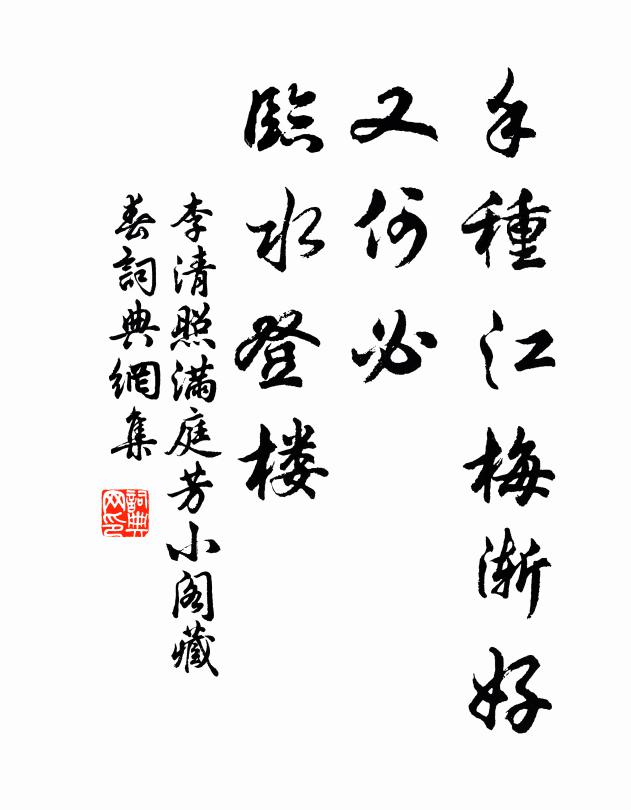 手種江梅漸好
又何必
臨水登楼
李清照滿庭芳小阁藏
春詞典網集
詞典
网印